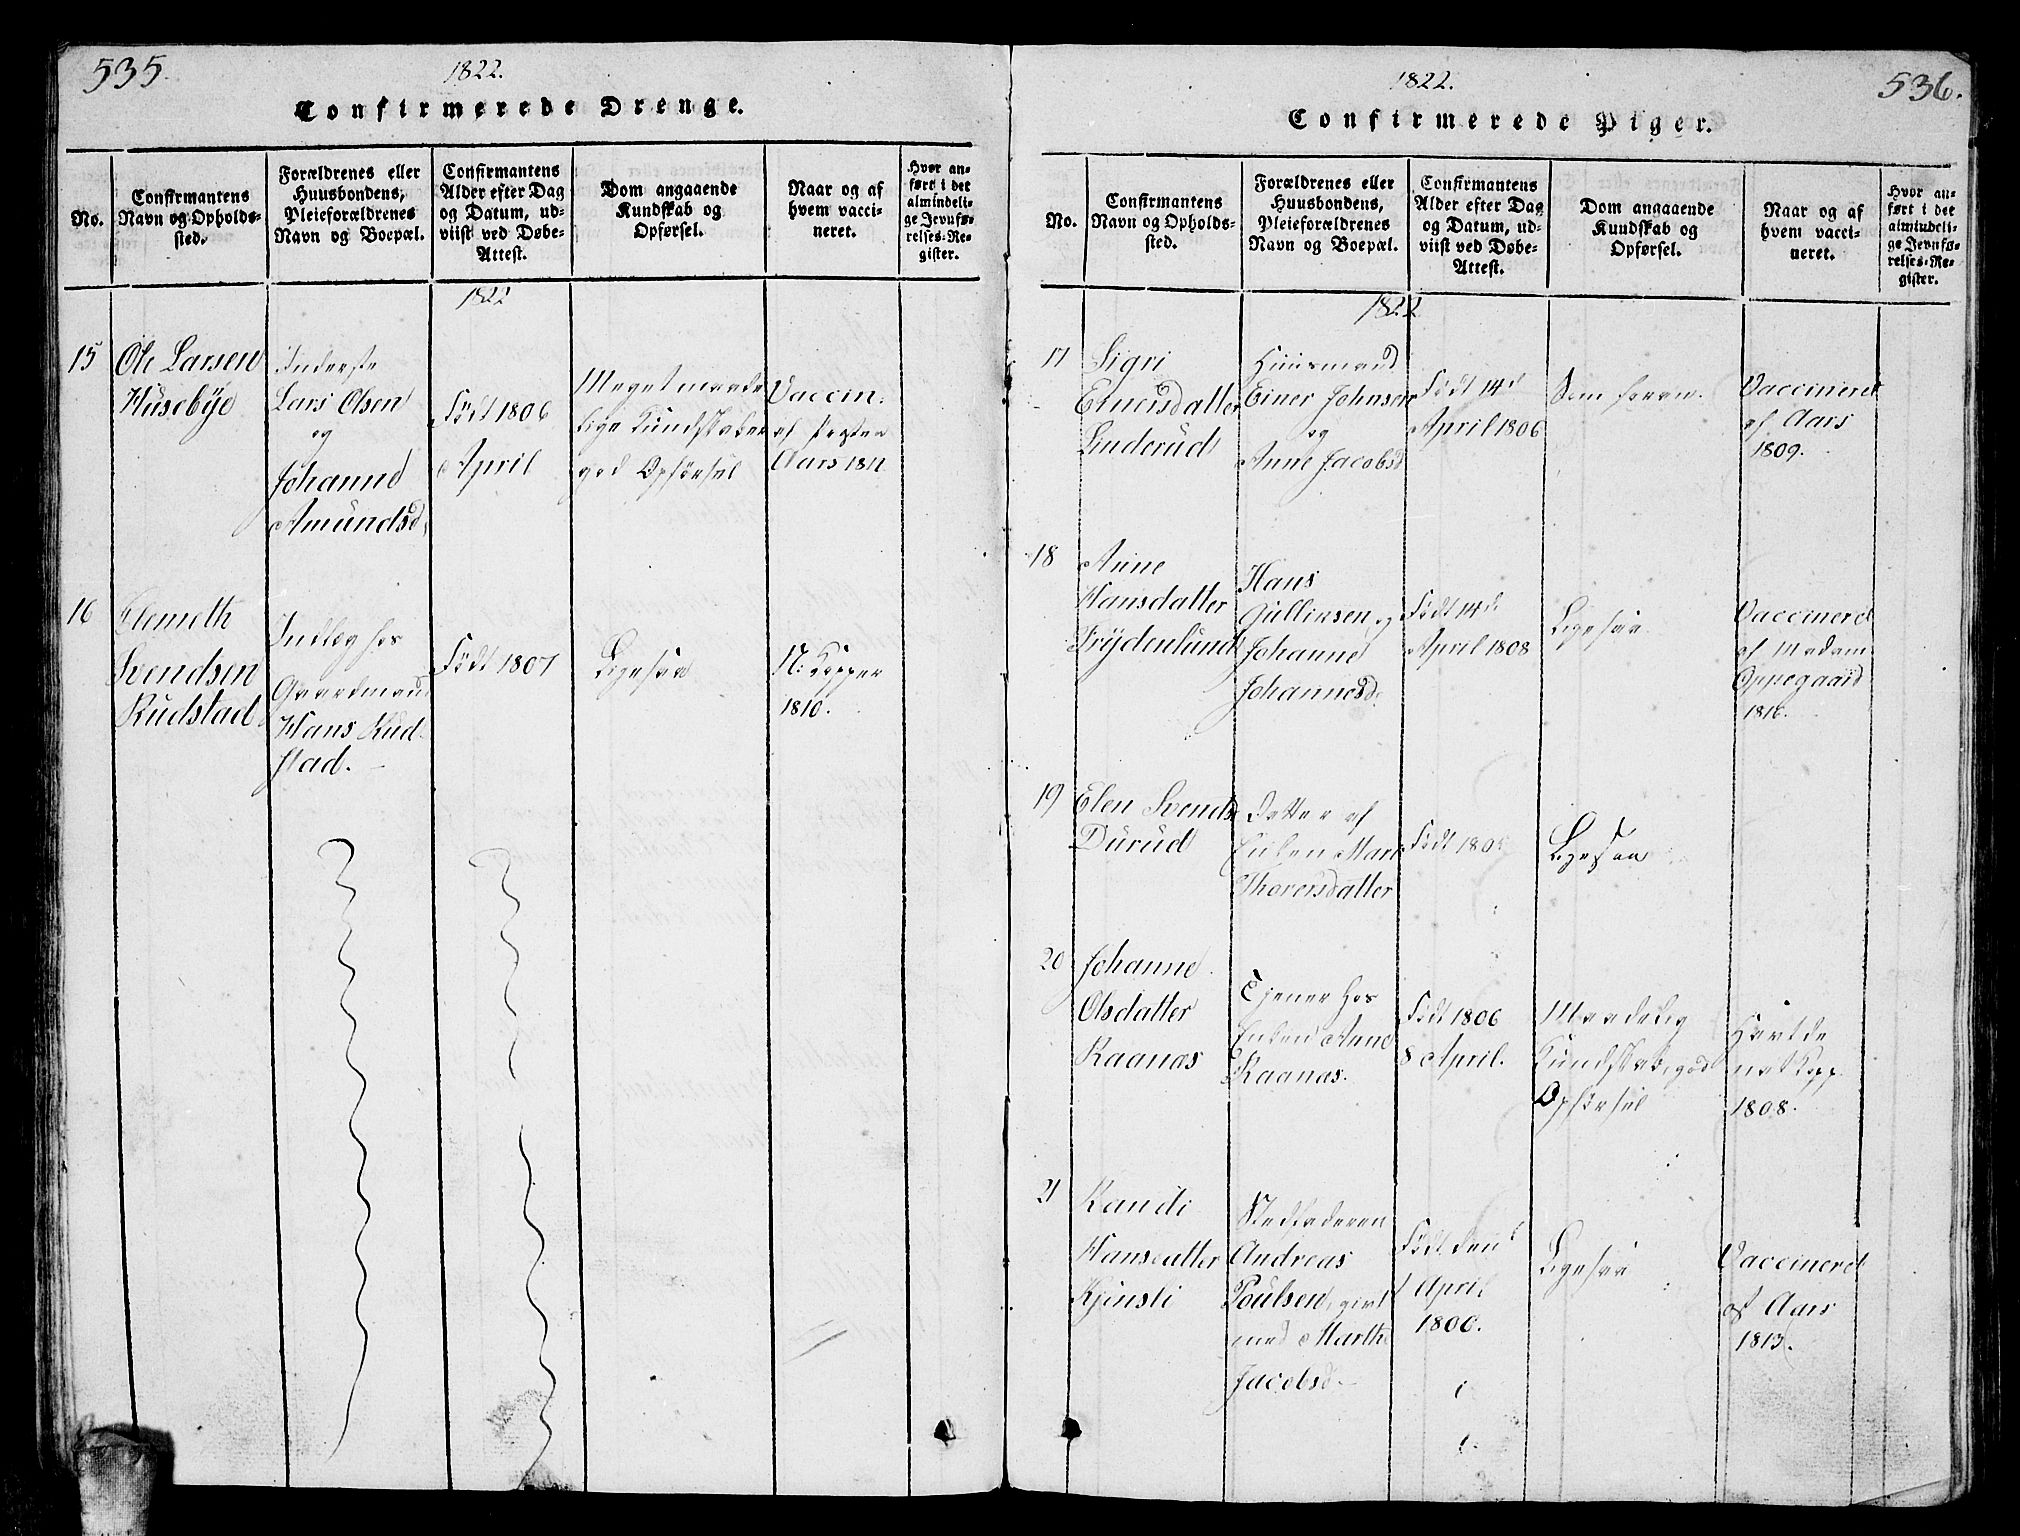 535.
1822.
Confirmerede Drenge.
No.
Confirmantens
Navn og Opholds-
sted.
Forældrenes eller
Huusbondens,
Pleieforældrenes
Navn og Boepæl.
Confirmantens
Alder efter Dag
og Datum, ud-
viist ved Døbe-
Attest.
Dom angaaende
Kundskab og
Opførsel.
Naar og af
hvem vacci-
neret.
Hvor an-
ført i det
almindeli-
ge Jevnfø-
relses-Re-
gister.
1822
15
Ole Larsen
Husebÿe
Inderste
Lars Olsen
og
Johanne
Amundsd.
Født 1806
April
Meget maade
lige Kundskaber
god Opførsel
Vaccin:
af Præsten
Aars 1811
16
Clemeth
Svendsen
Rudstad
Indlæg hos
Gaardmand
Hans Rud-
stad.
Født 1807
Ligesaa
N: Kopper
1810.
1822.
536.
Confirmerede Piger.
No.
Confirmantens
Navn og Opholds-
sted.
Forældrenes eller
Huusbondens,
Pleieforældrenes
Navn og Boepæl.
Confirmantens
Alder efter Dag
og Datum, ud-
viist ved Døbe-
Attest.
Dom angaaende
Kundskab og
Opførsel.
Naar og af
hvem vacci-
neret.
Hvor an-
ført i det
almindeli-
ge Jevnfø-
relses-Re-
gister.
1822
17
Sigri
Einersdatter
Linderud
Huusmand
Einer Johnsen
og
Anne Jacobsd
Født 14d
April 1806
Som foran.
Vaccineret
af Aars
1809.
18
Anne
Hansdatter
Frÿdenlund
Hans
Gulliksen og
Johanne
Johannesd.
Født 14de
April 1808
Ligesaa
Vaccineret
af Madam
Oppegaard
1816.
19
Elen Svends
Durud
Datter af
Enken Mari
Thoersdatter
Født 180
Ligesaa
20
Johanne
Olsdatter
Raanaas
Tjener hos
Enken Anne
Raanas.
Født 1806
8 April.
Maadelig
Kundskab, god
Opførsel
Havt de
nat Kopp.
1808.
21
Randi
Hansdatter
Kjinsli
Stedfaderen
Andreas
Poulsen, givt
med Marthe
Jacobsd.
Født den
April
1806.
Ligesaa
Vaccineret
af Aars
1813.